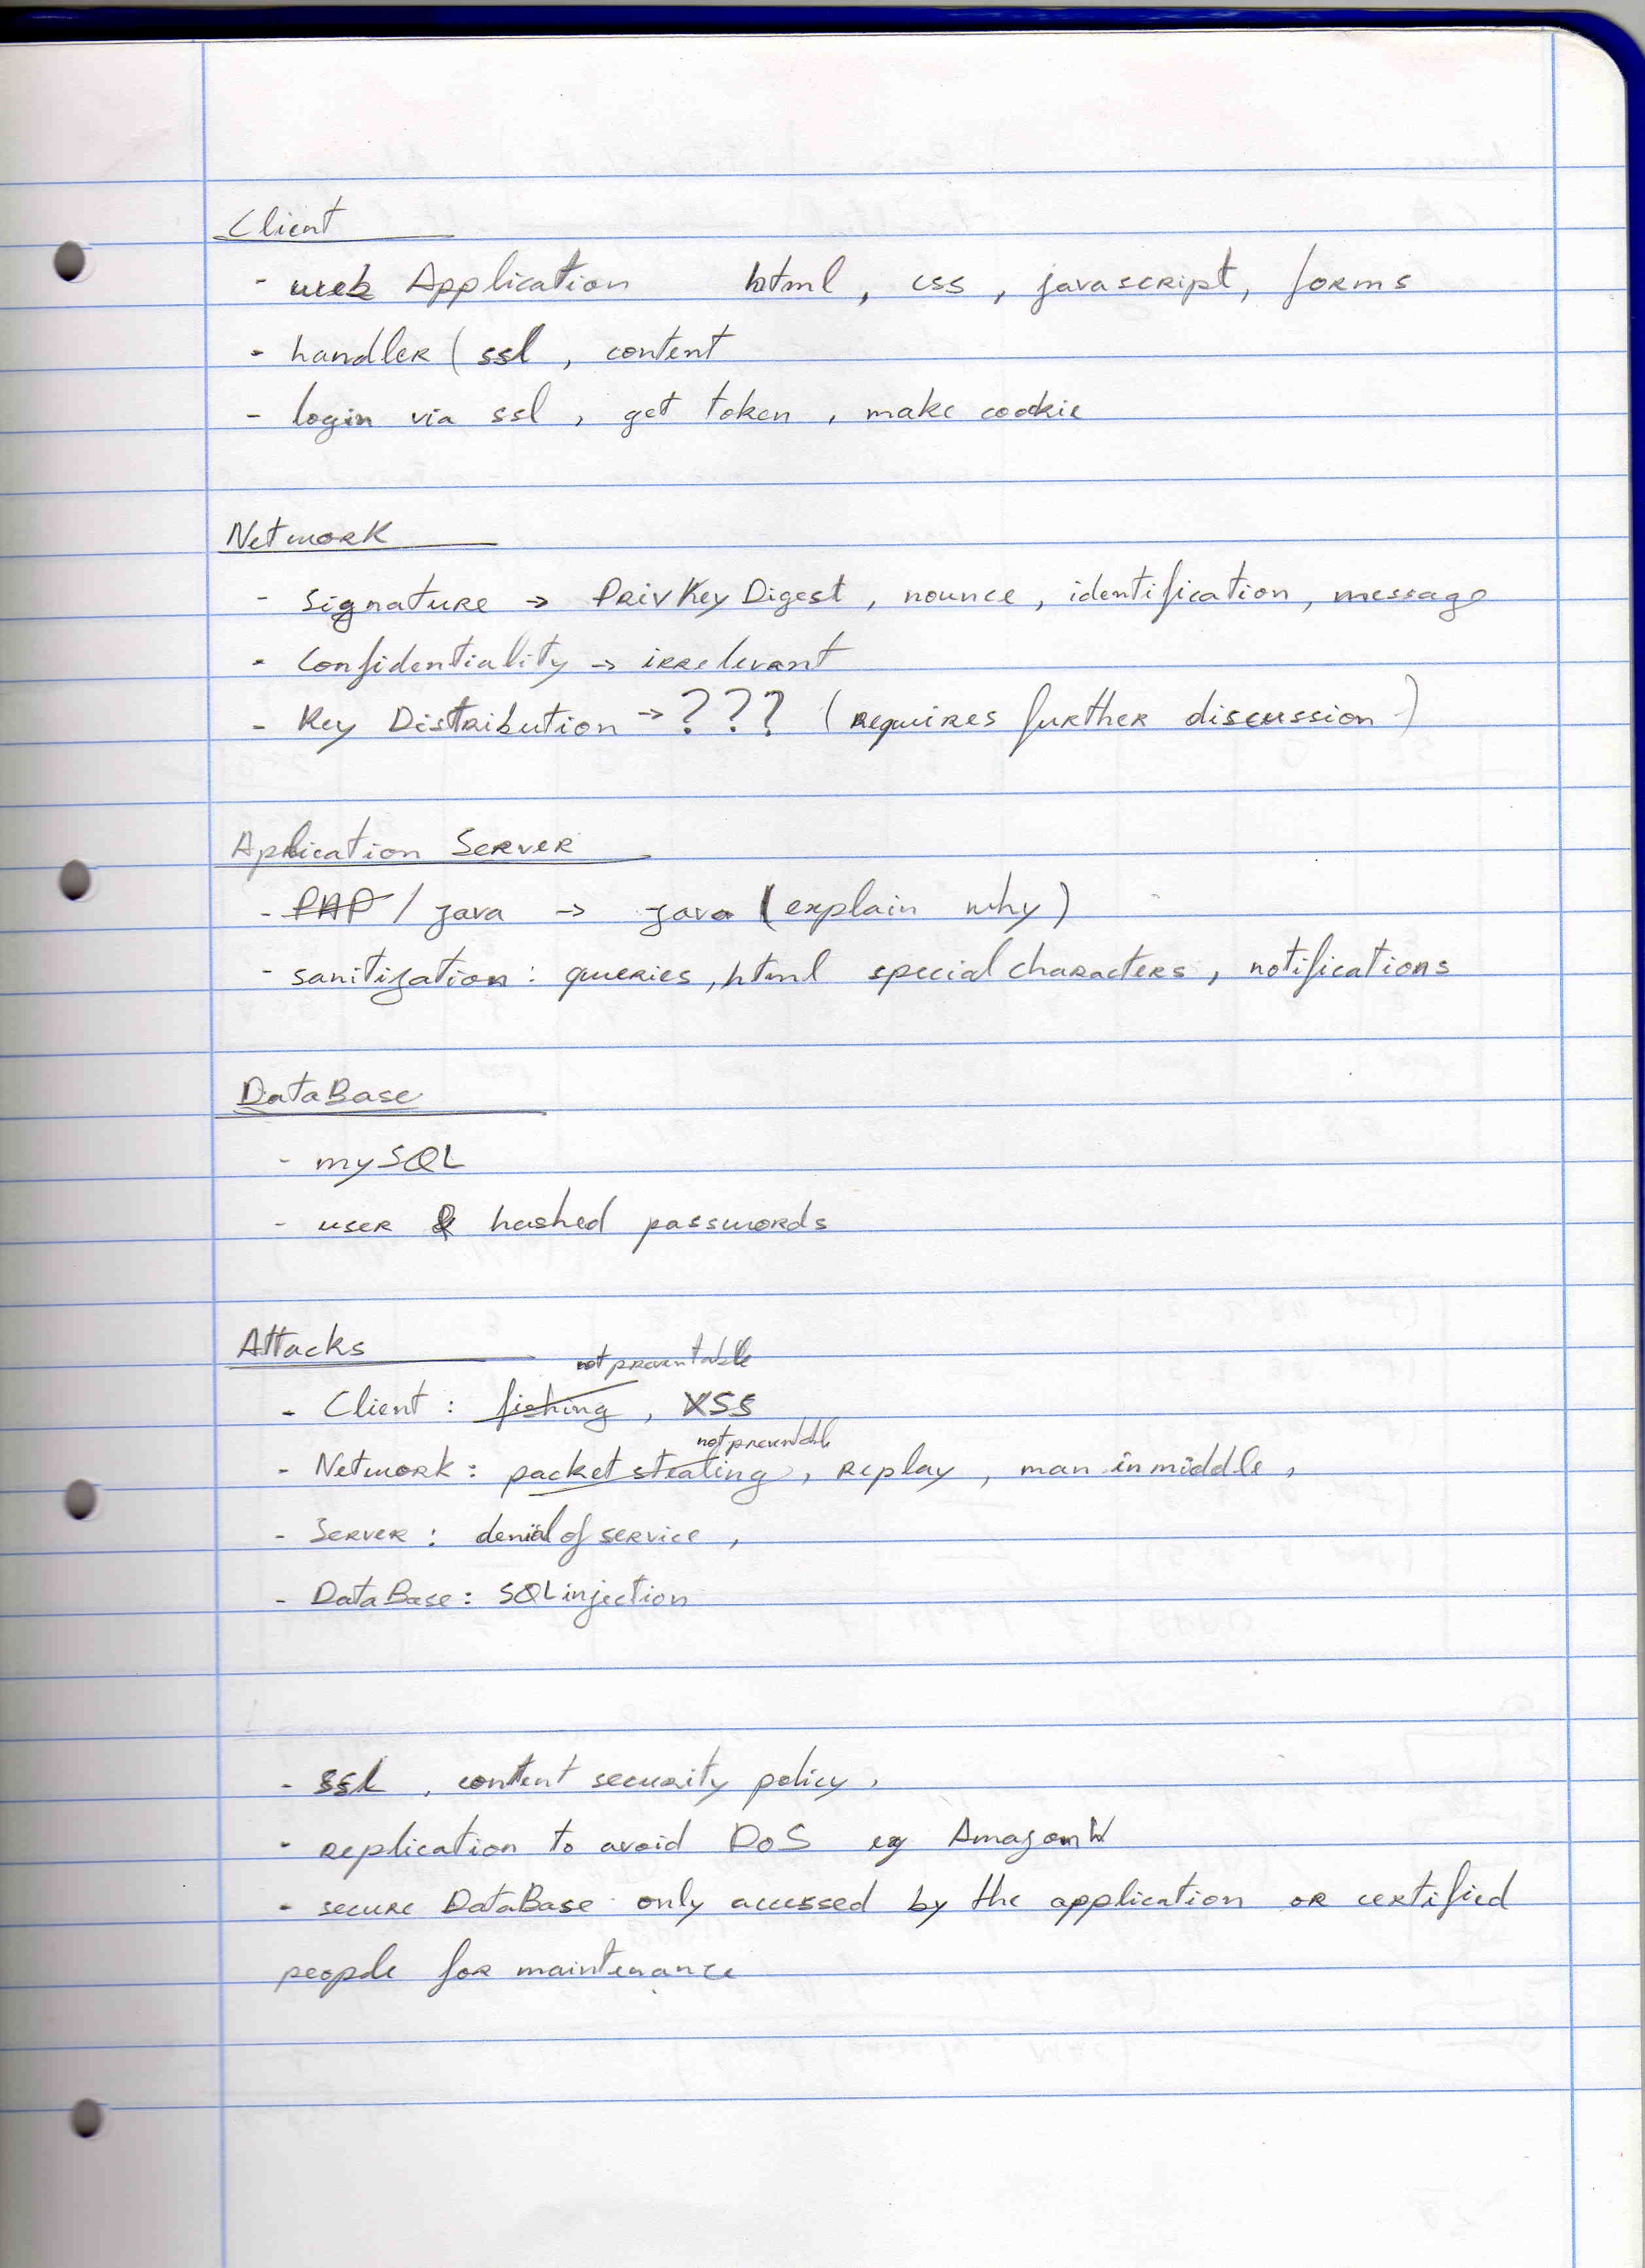 Client
- web Application html, css, javascript, forms
- handler ( ssl, content
- login via ssl, get token, make cookie
Network
- signature -> PrivKeyDigest, nounce, identification, message
- Confidentiality -> irrelevant
- Key Distribution -> ??? (requires further discussion)
Application Server
- PHP / java -> java (explain why)
- sanitization: queries, html special characters, notifications
DataBase
- mySQL
- user & hashed passwords
Attacks
not preventable
- Client: fishing, XSS
not preventable
- Network: packet stealing, replay, man in middle,
- Server: denial of service,
- DataBase: SQL injection
- ssl, content security policy,
- replication to avoid DoS eg AmazonW
- secure DataBase only accessed by the application or certified
people for maintenance